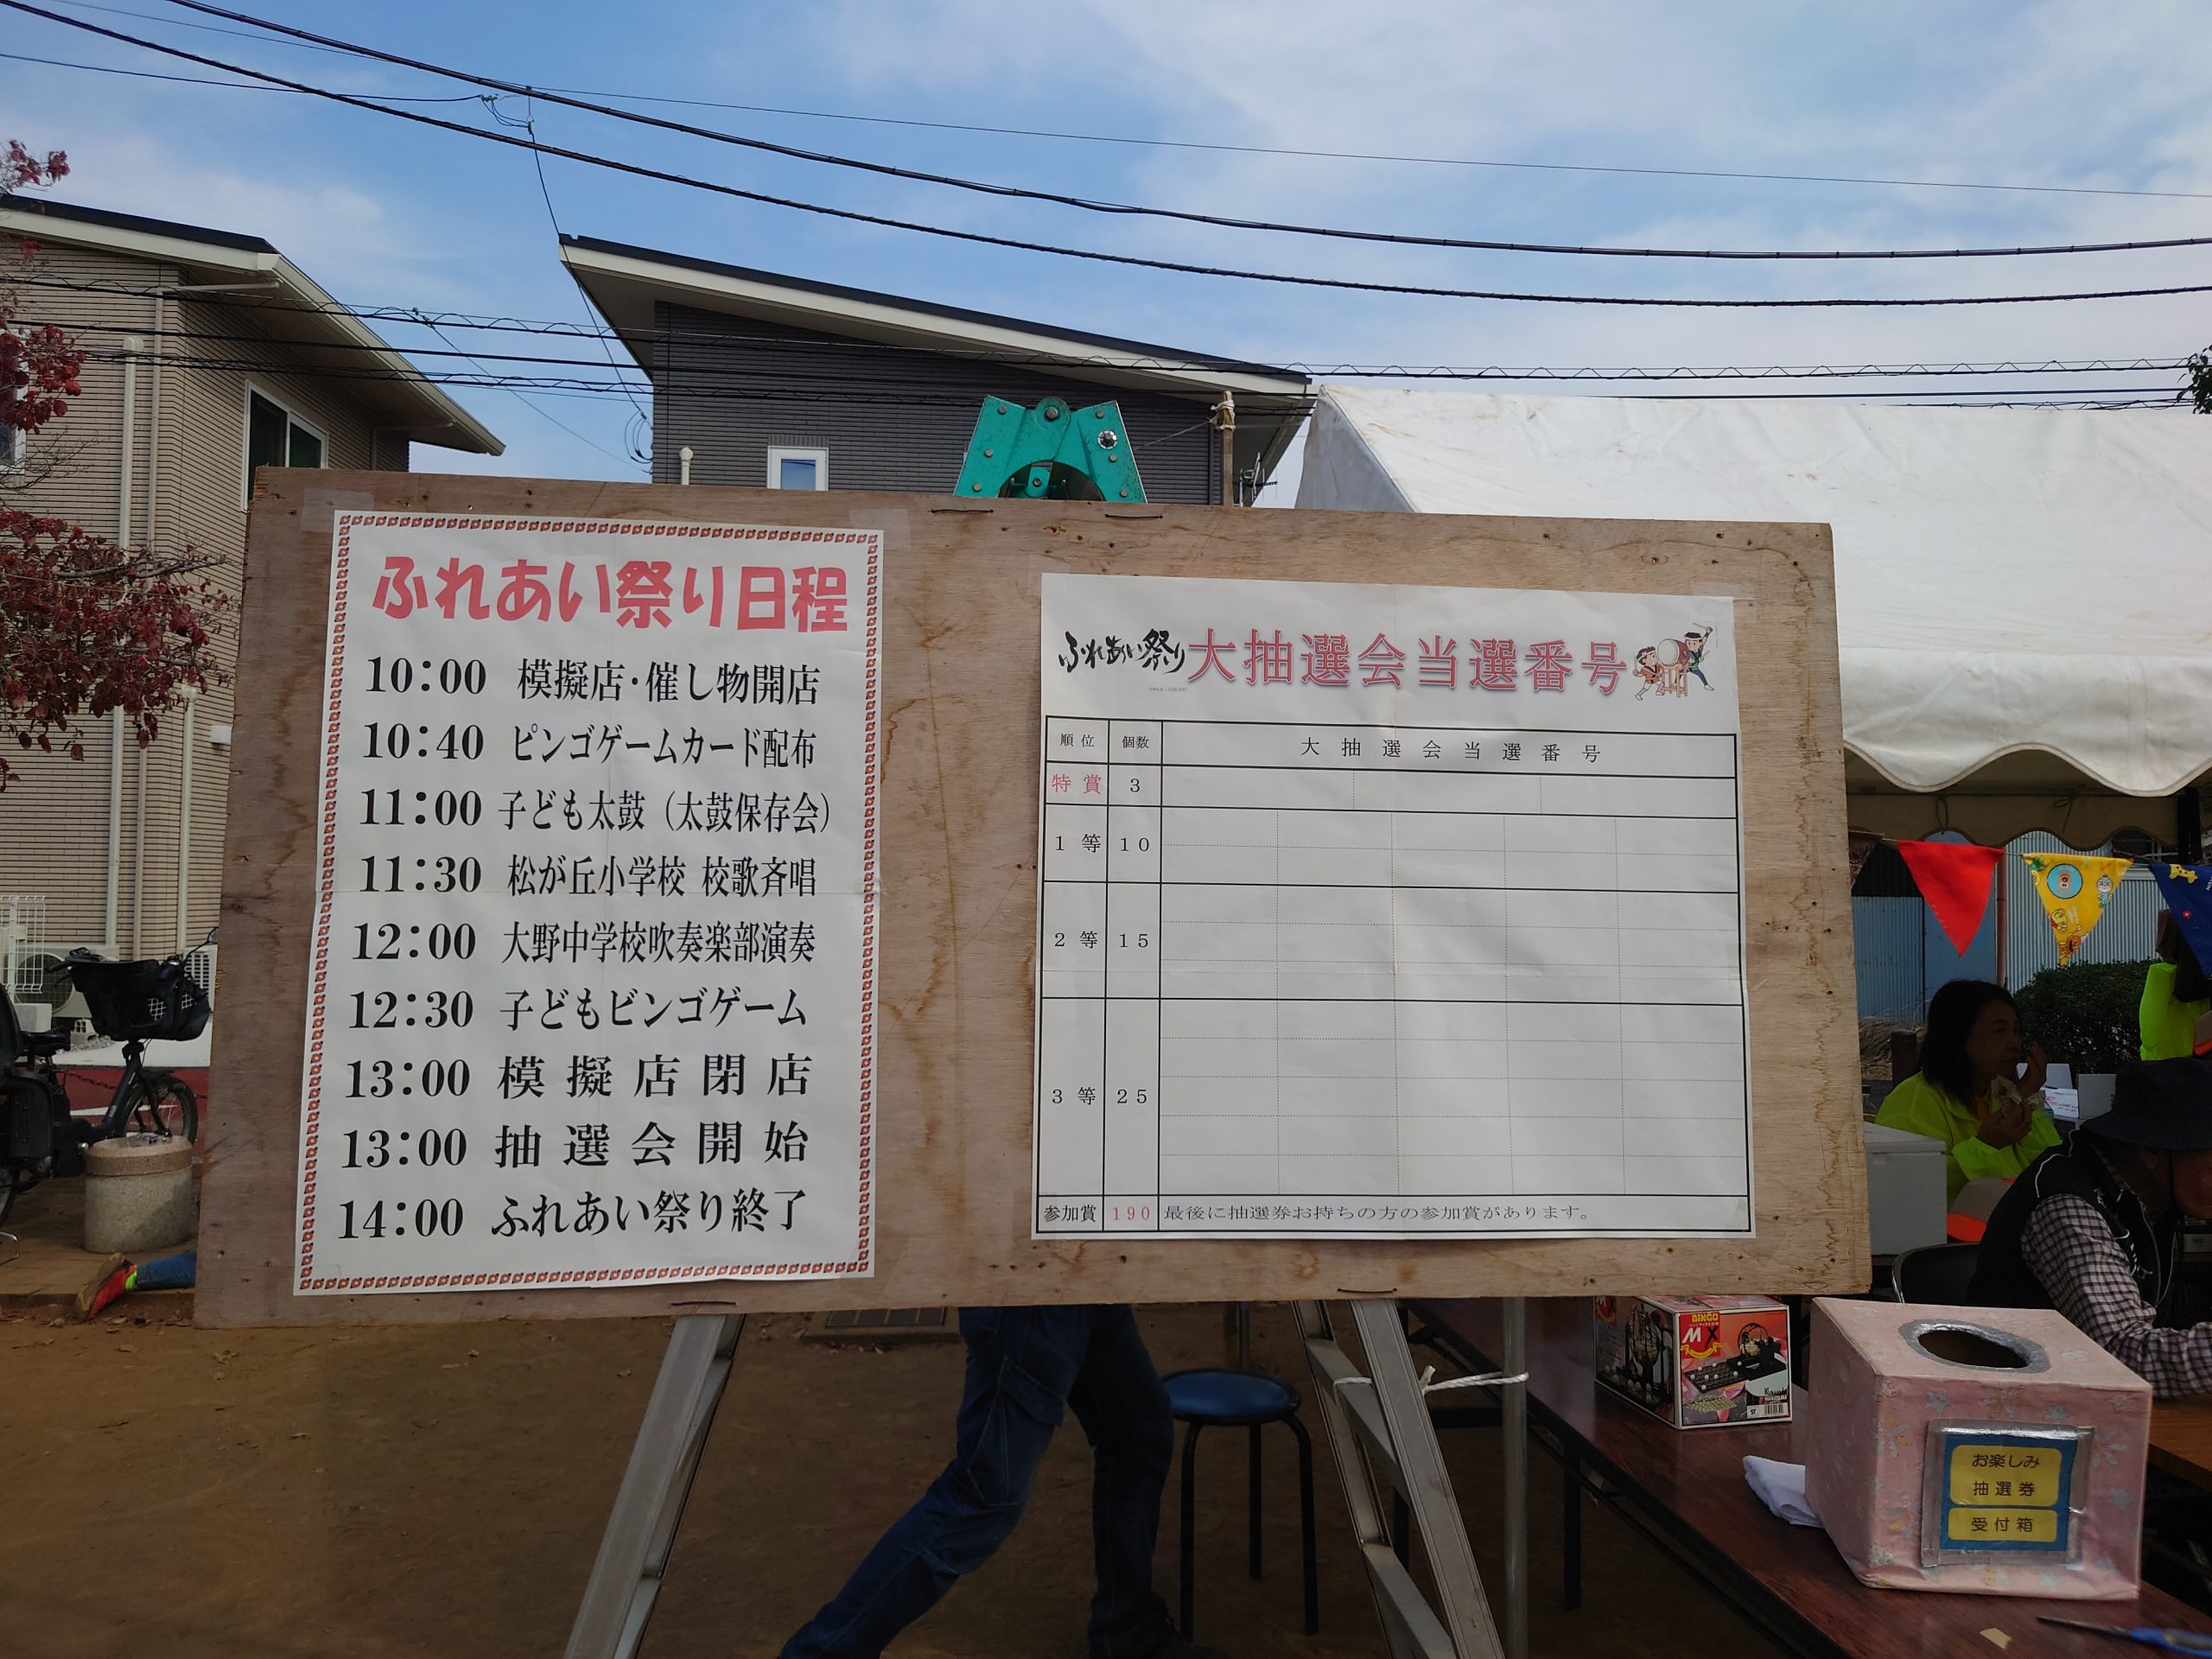 ふれあい祭り日程
10:00 模擬店・催し物開店
10:40 ピンゴゲームカード配布
11:00 子ども太鼓（太鼓保存会）
11:30 松が丘小学校 校歌斉唱
12:00 大野中学校吹奏楽部演奏
12:30 子どもビンゴゲーム
13:00 模擬店閉店
13:00 抽選会開始
14:00 ふれあい祭り終了
ふれあい祭り 大抽選会当選番号
順位 個数 大抽選会当選番号
特賞 3
1等 10
2等 15
3等 25
参加賞 190 最後に抽選券お持ちの方の参加賞があります。
BINGO
MX
お楽しみ
抽選券
受付箱